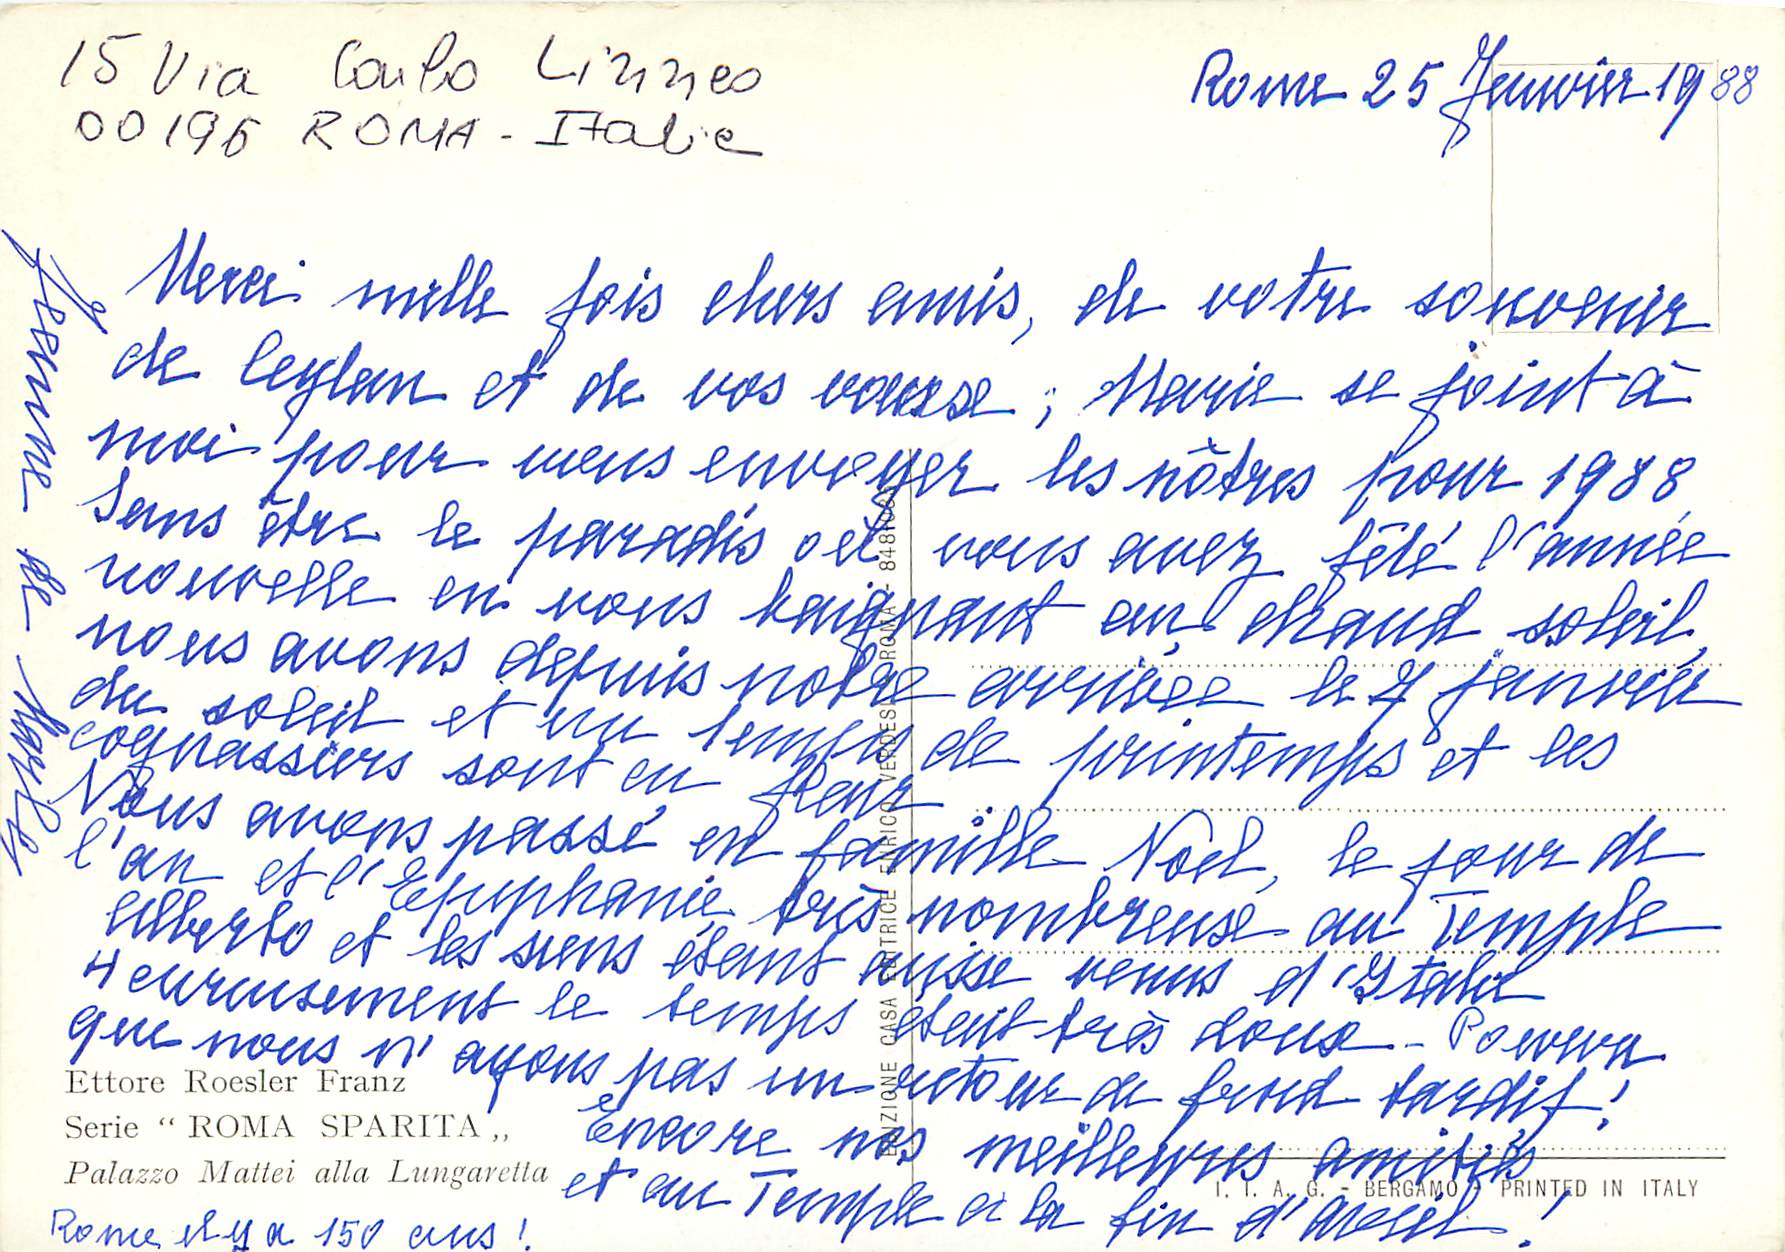 15 Via Carlo Linneo
00196 ROMA - Italie
Rome 25 Janvier 1988
Merci mille fois chers amis, de votre souvenir
de Ceylan et de vos voeux ; Marie se joint à
moi pour vous envoyer les nôtres pour 1988
Sans être le paradis où vous avez fêté l'année
nouvelle en vous baignant au chaud soleil,
nous avons depuis notre arrivée le 7 janvier
du soleil et un temps de printemps et les
cognassiers sont en fleur
Nous avons passé en famille Noël, le jour de
l'an et l'Epiphanie très nombreuse au Temple
Alberto et les siens étant aussi venus d'Italie
Heureusement le temps était très doux - Pourvu
que nous n'ayons pas un retour de froid tardif !
Encore nos meilleures amitiés
et au Temple à la fin d'Avril !
Jeanne de
Ettore Roesler Franz
Serie “ ROMA SPARITA „
Palazzo Mattei alla Lungaretta
Rome il y a 150 ans !
EDIZIONE CASA EDITRICE ENRICO VERDESI ROMA -
I. T. A. G. - BERGAMO - PRINTED IN ITALY